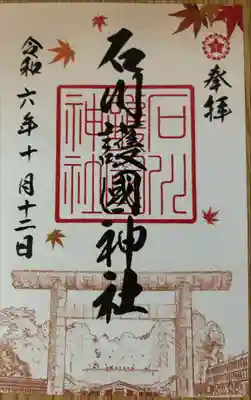 奉拝
石川護國神社
石川
護國
神社
令和六年十月十二日